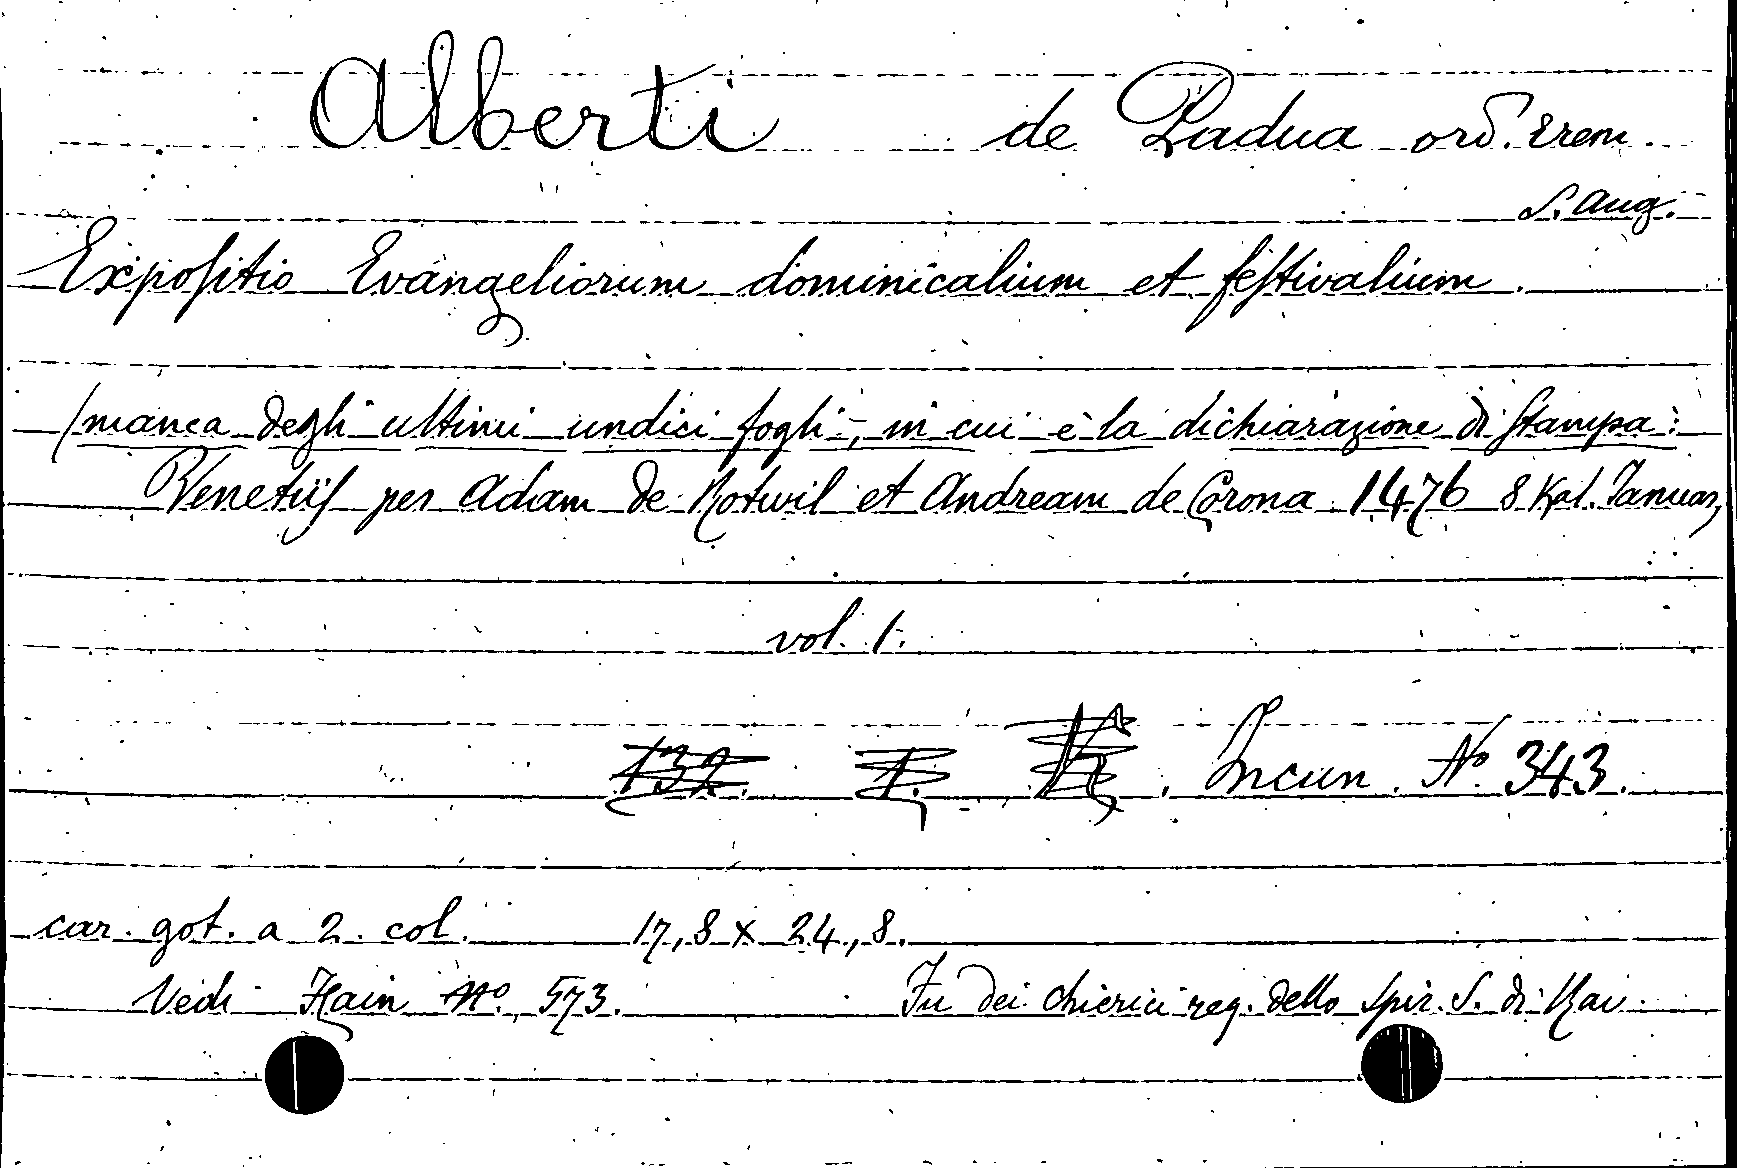 Alberti de Padua ord. Erem.
S. Aug.
Expoſitio Evangeliorum dominicalium et feſtivalium.
(manca degli ultimi undici fogli, in cui è la dichiarazione di ſtampa:
Venetiiſ per Adam de Rotwil et Andream de Corona 1476 8 Kal. Januar,
vol. 1.
132. 1. Incun. Nº 343.
car. got. a 2. col. 17,8 x 24,8.
Vedi Hain Nº. 573. Fu dei chierici reg. dello Spir. S. di Rav.